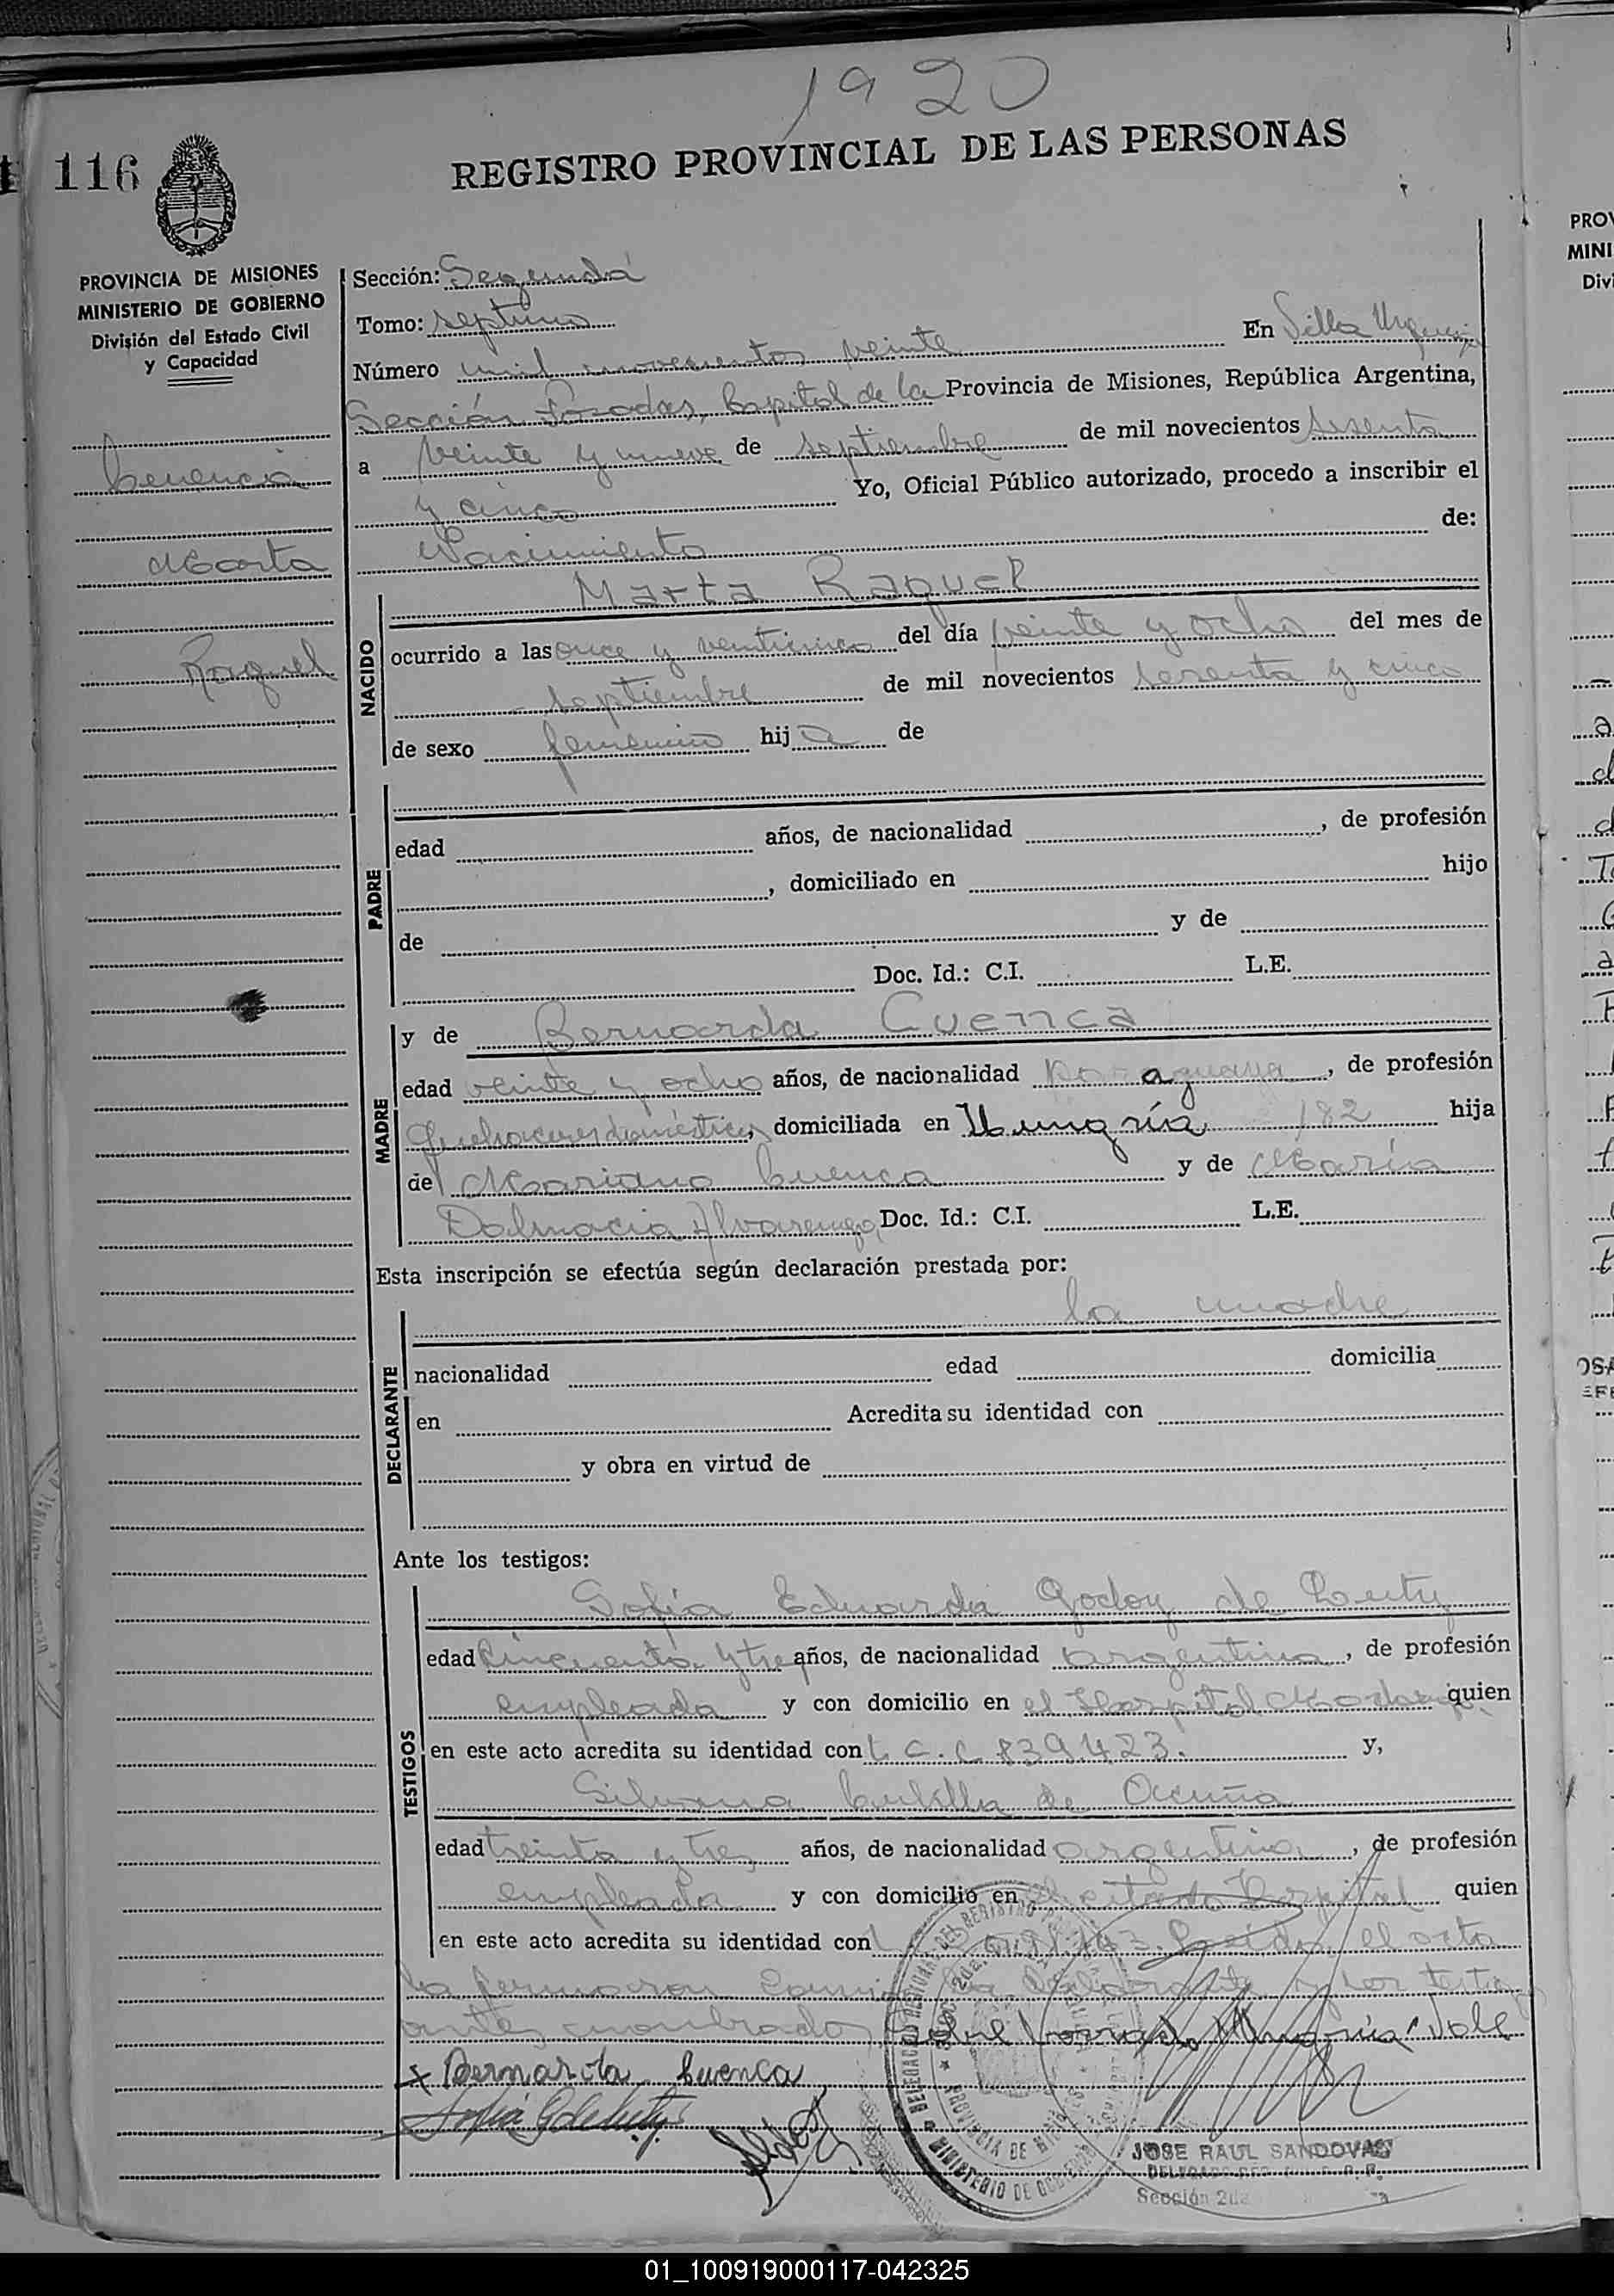 1920
116
REGISTRO PROVINCIAL DE LAS PERSONAS
PROVINCIA DE MISIONES
MINISTERIO DE GOBIERNO
División del Estado Civil
y Capacidad
Cuenca
Marta
Raquel
Sección: Segunda
Tomo: septimo
Número mil novecientos veinte En Villa Urquiza
Sección Posadas, Capital de la Provincia de Misiones, República Argentina,
a veinte y nueve de septiembre de mil novecientos sesenta
y cinco Yo, Oficial Público autorizado, procedo a inscribir el
Nacimiento de:
NACIDO
Marta Raquel
ocurrido a las once y veinticinco del día veinte y ocho del mes de
septiembre de mil novecientos sesenta y cinco
de sexo femenino hija de
PADRE
edad años, de nacionalidad , de profesión
, domiciliado en hijo
de y de
Doc. Id.: C.I. L.E.
MADRE
y de Bernarda Cuenca
edad veinte y ocho años, de nacionalidad paraguaya, de profesión
quehaceres domésticos, domiciliada en Hungría 182 hija
de Mariano Cuenca y de María
Dalmacia Alvarenga Doc. Id.: C.I. L.E.
Esta inscripción se efectúa según declaración prestada por:
DECLARANTE
la madre
nacionalidad edad domicilia
en Acredita su identidad con
y obra en virtud de
Ante los testigos:
TESTIGOS
Sofía Eduarda Godoy de
edad Cincuenta y tres años, de nacionalidad argentina, de profesión
empleada y con domicilio en el Hospital quien
en este acto acredita su identidad con L.C. 839.423. y,
Silvana de Acuña
edad treinta y tres años, de nacionalidad argentina, de profesión
empleada y con domicilio en el citado Hospital quien
en este acto acredita su identidad con Leída el acta
la firmaron la declarante y los testigos
antes nombrados, Sobre borrado Hungría: Vale
x Bernarda Cuenca
MINISTERIO DE GOBIERNO
PROVINCIA DE MISIONES
JOSE RAUL SANDOVAL
Sección 2da
PROV
MINI
Divi
01_100919000117-042325